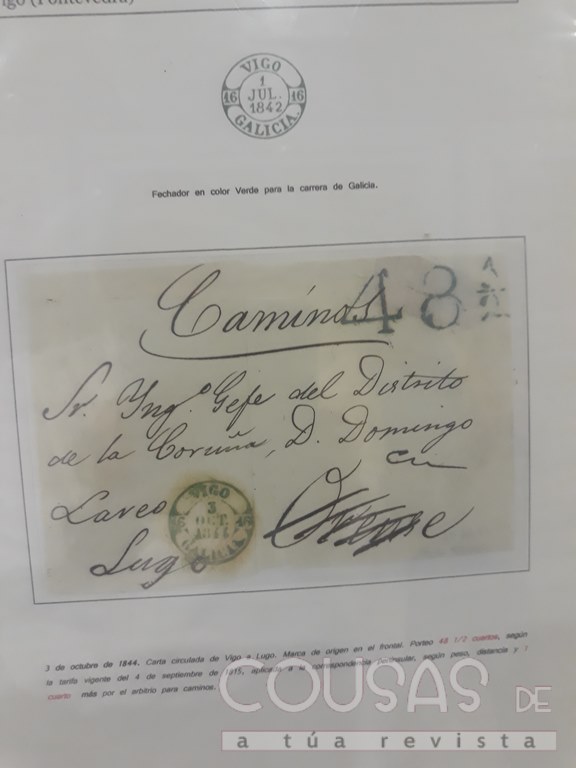 igo (Pontevedra)
VIGO
1
16 JUL. 16
1842
GALICIA.
Fechador en color Verde para la carrera de Galicia.
Caminos 48
Sr. Yng.º Gefe del Distrito
de la Coruña, D. Domingo
en
Lareo
Orense
Lugo
VIGO
3
16 OCT. 16
1844
GALICIA
3 de octubre de 1844. Carta circulada de Vigo a Lugo. Marca de origen en el frontal. Porteo 48 1/2 cuartos, según
la tarifa vigente del 4 de septiembre de 1815, aplicada a la correspondencia Peninsular, según peso, distancia y 1
cuarto más por el arbitrio para caminos.
COUSAS DE
a túa revista